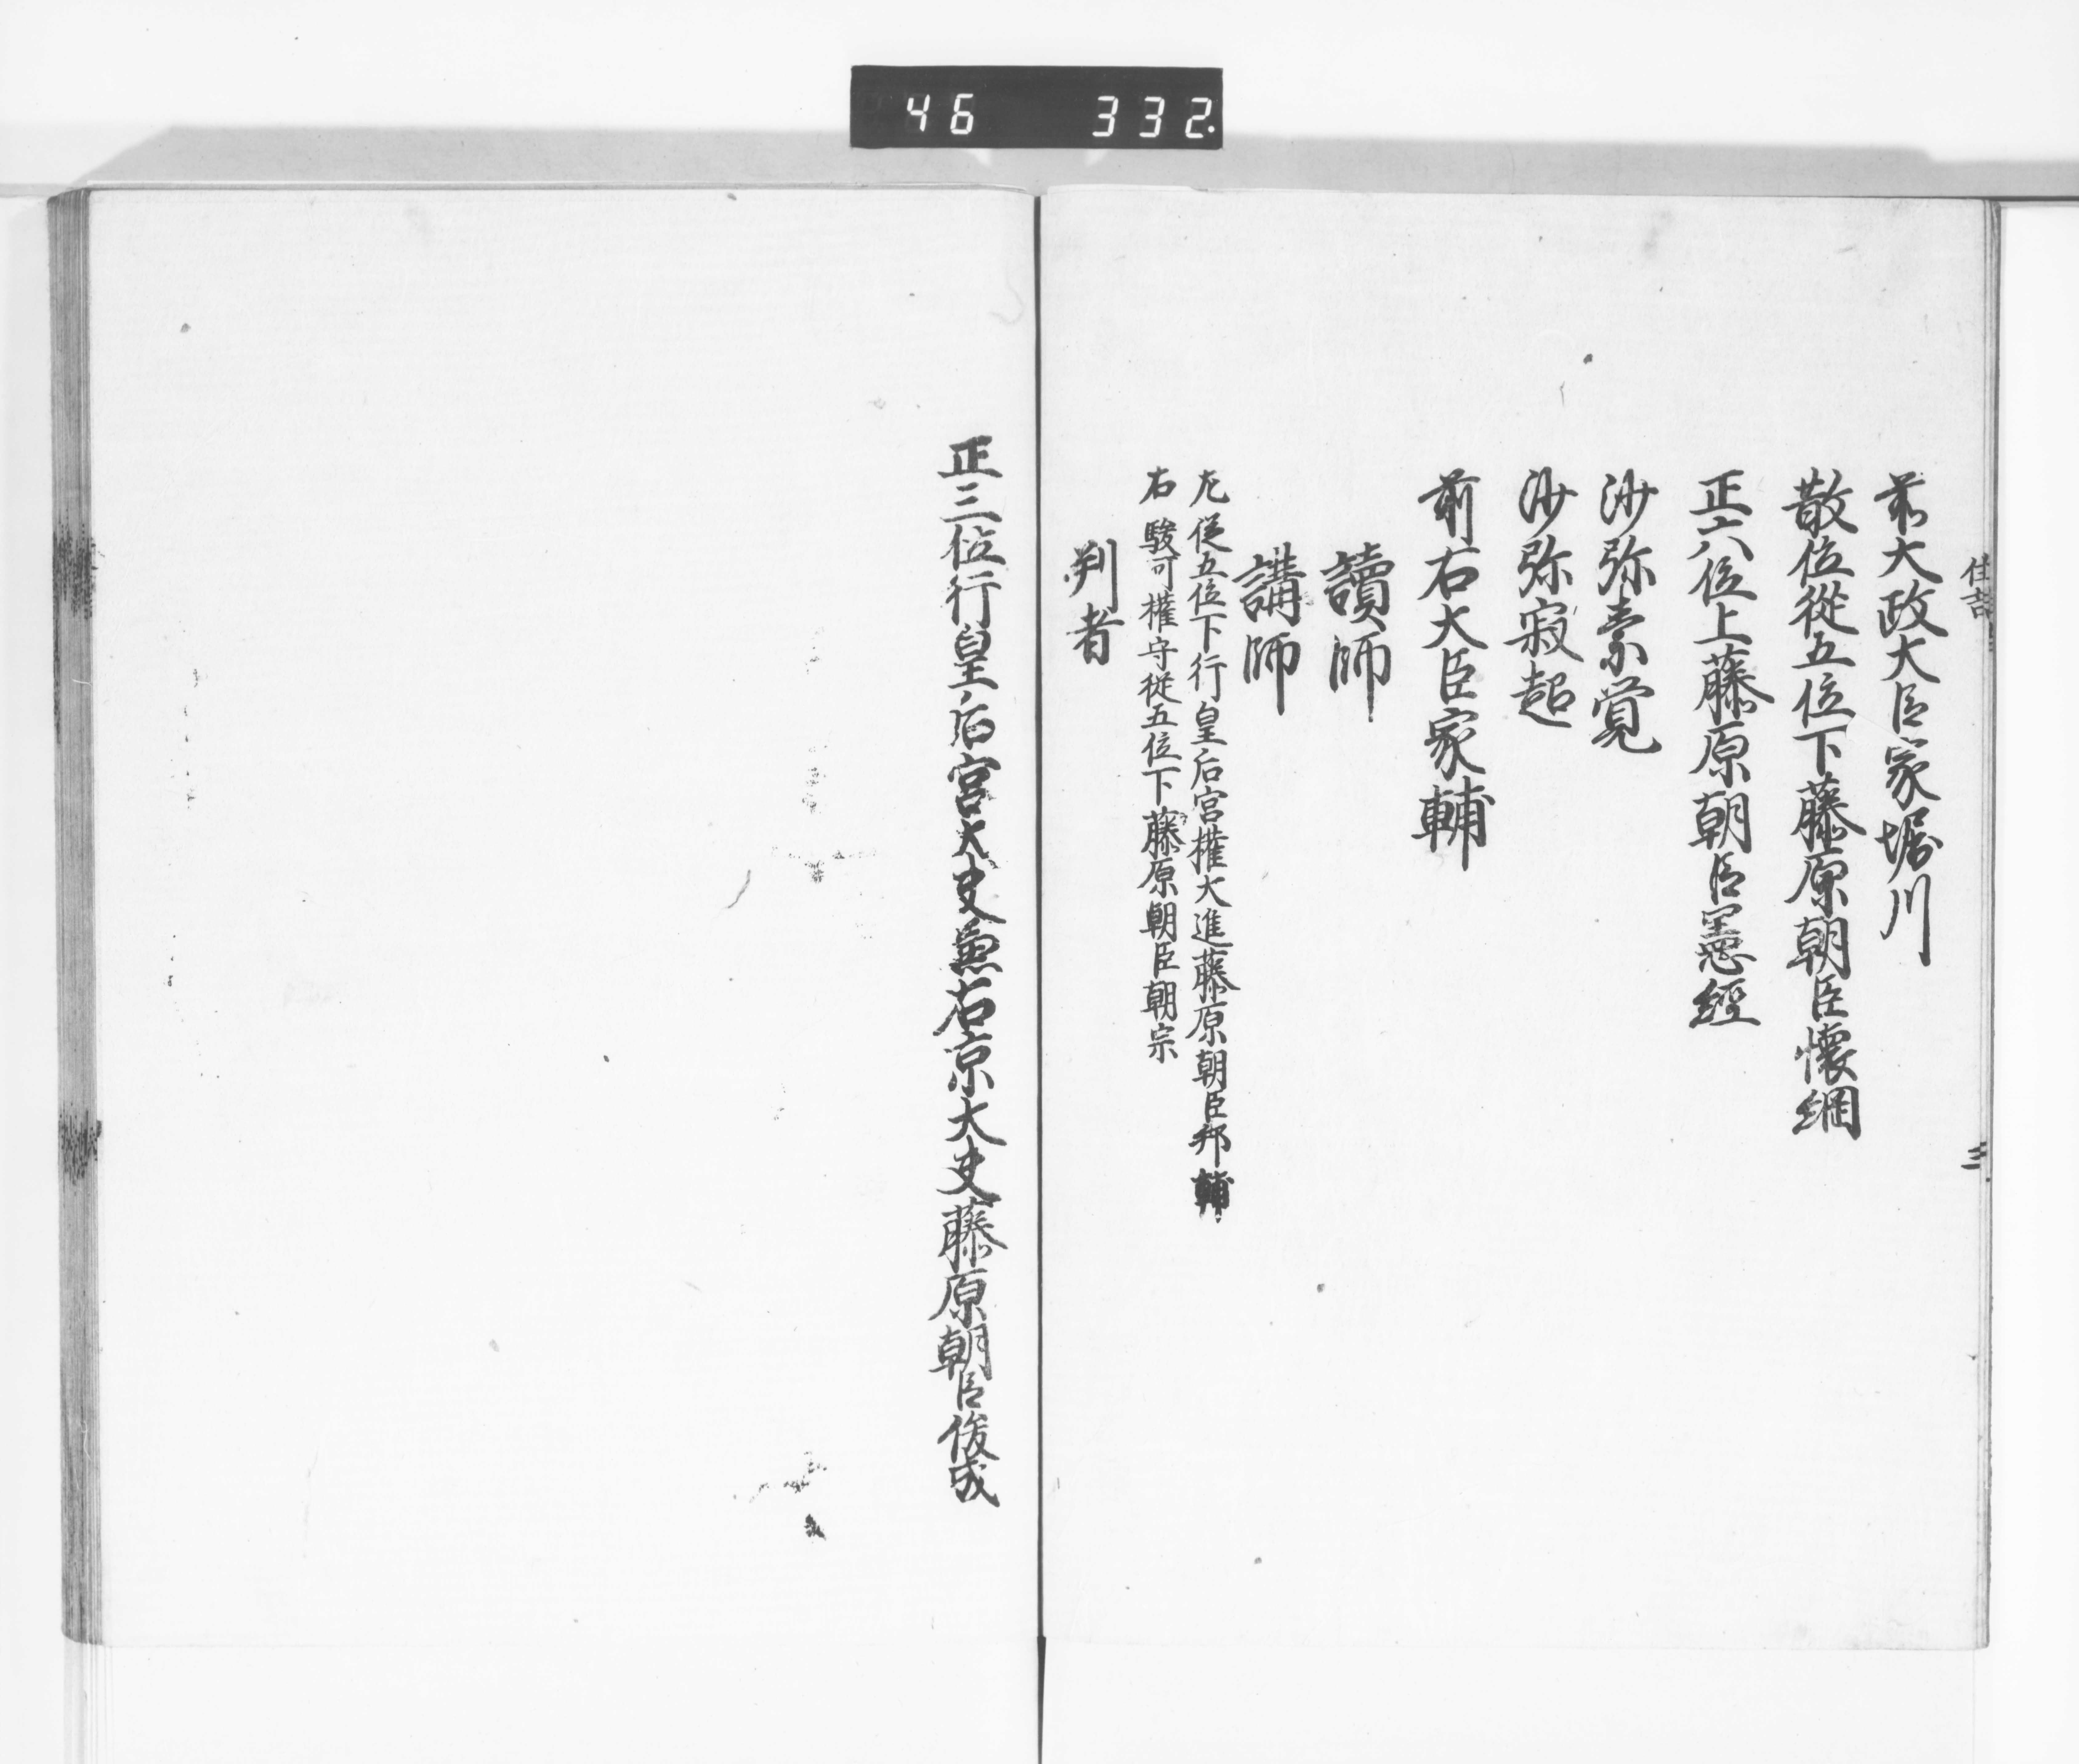 46 332.
住吉
三
前大政大臣家堀川
散位從五位下藤原朝臣懐綱
正六位上藤原朝臣憲經
沙弥素覚
沙弥寂超
前右大臣家輔
讀師
講師
左從五位下行皇后宮權大進藤原朝臣邦輔
右駿可權守從五位下藤原朝臣朝宗
判者
正三位行皇后宮大夫兼右京大夫藤原朝臣俊成